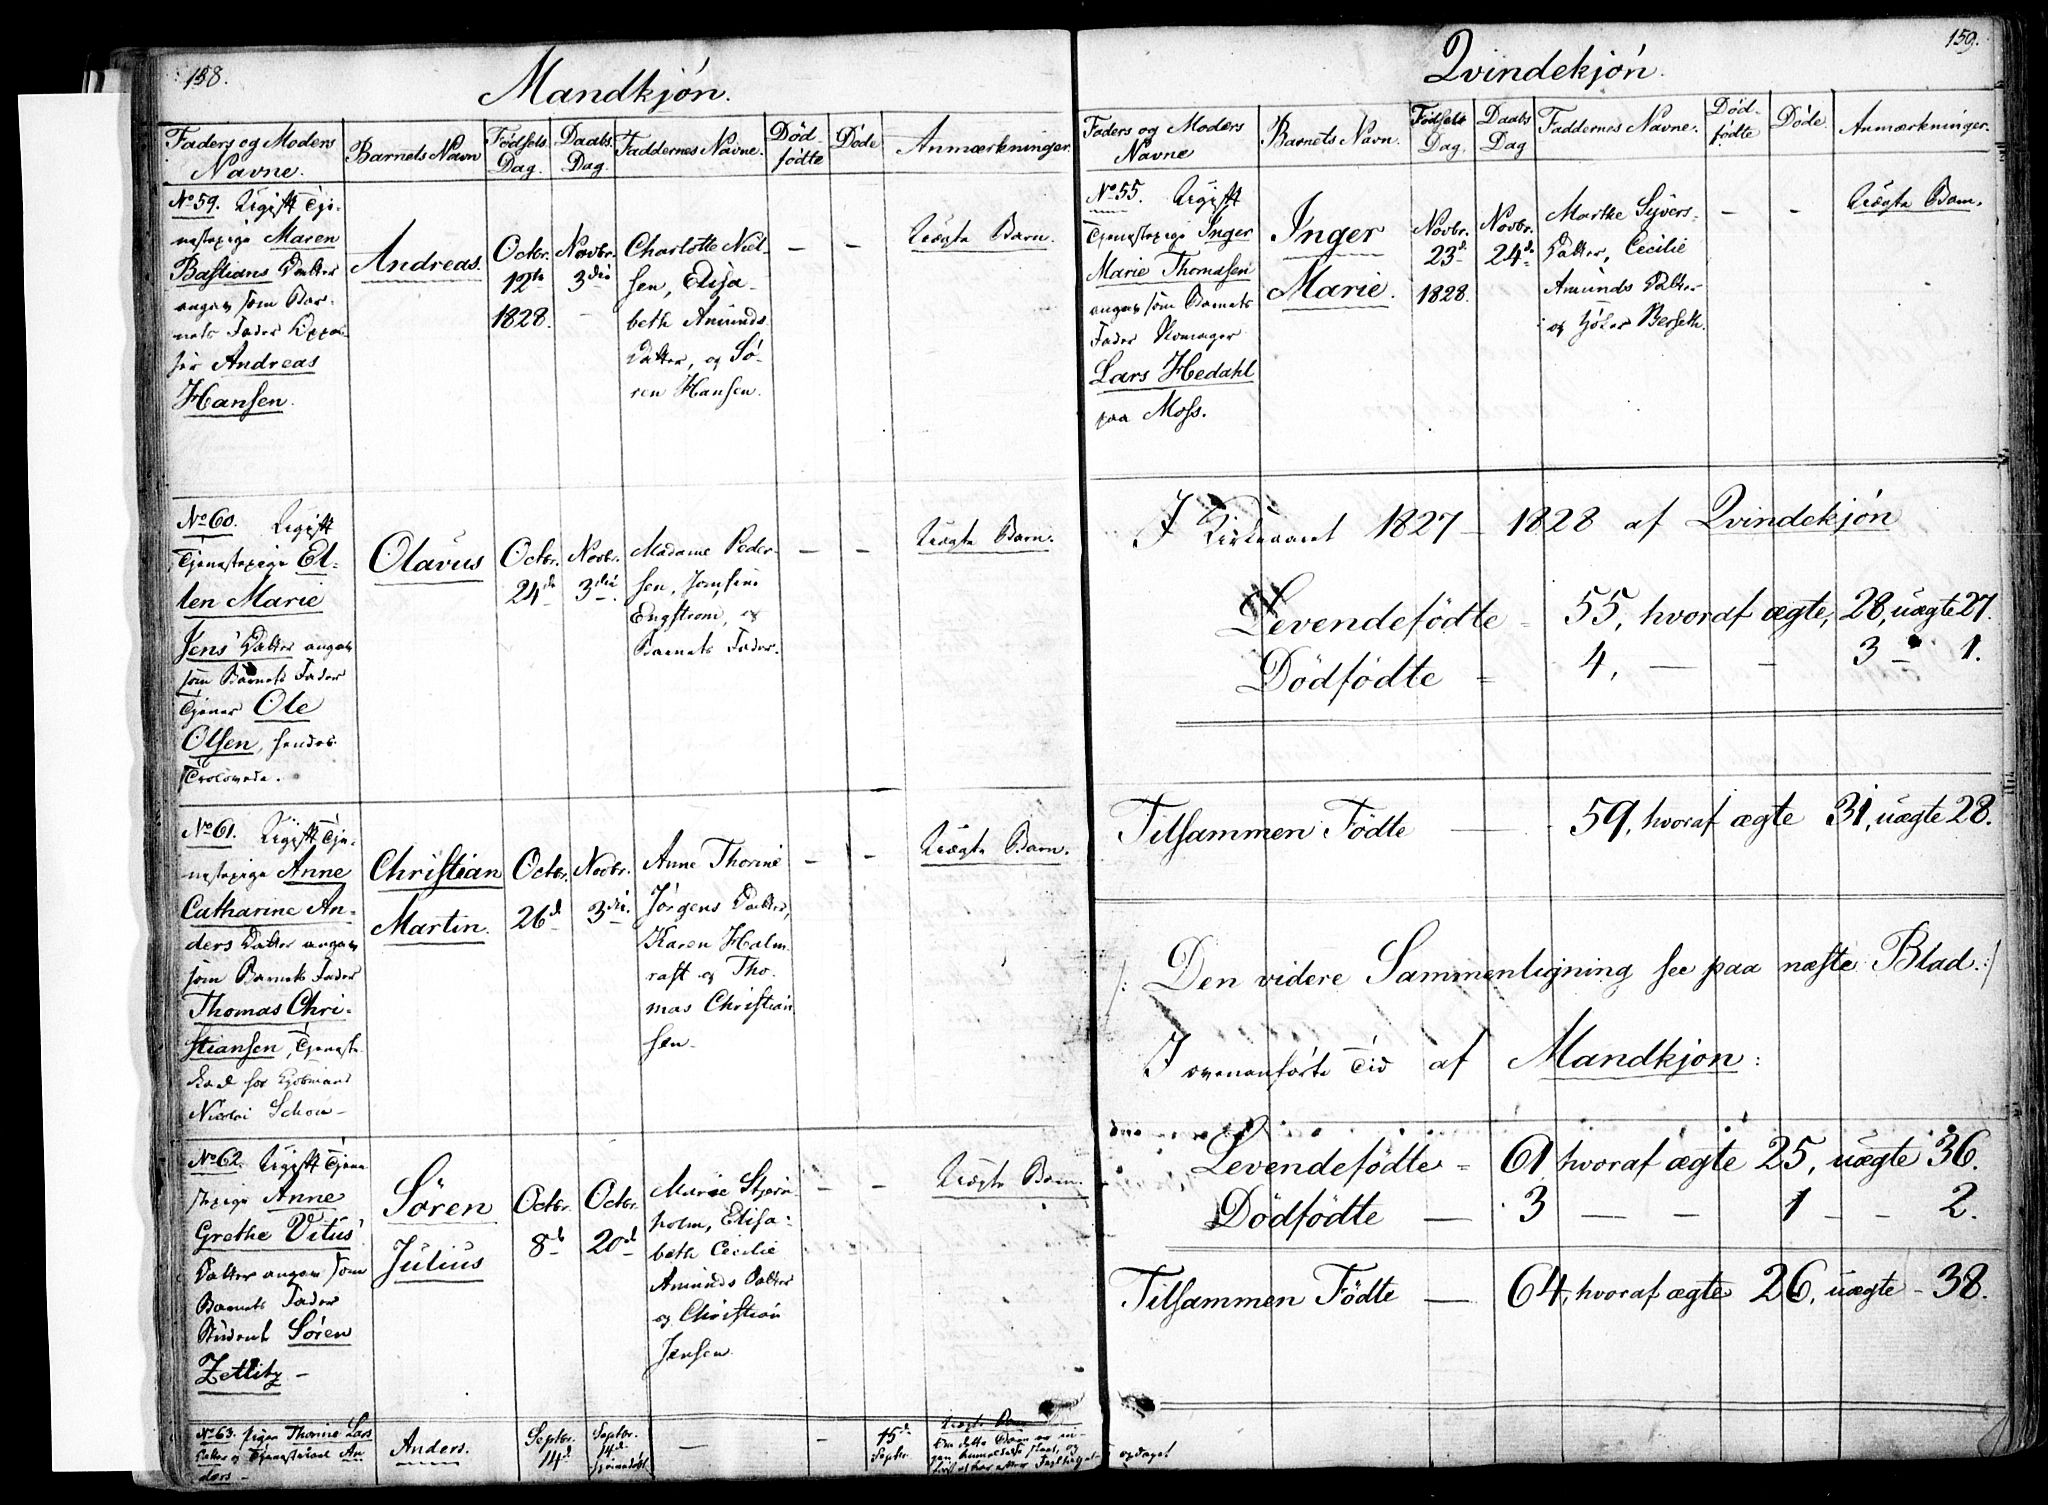 158.
Mandkjøn.
Faders og Moders
Navne.
Barnets Navn
Fødsels
Dag.
Daabs
Dag.
Faddernes Navne.
Død-
fødte
Døde
Anmærkninger.
No 59. Ugift Tje-
nestepige Maren
Bastians Datter
angav som Bar-
nets Fader
Andreas
Hansen.
Andreas.
Octbr.
12te
1828.
Novbr.
3die
Charlotte Niel-
sen, Elisa-
beth Amunds
Datter, og Sö-
ren Hansen.
Uægte Barn.
No 60. Ugift
Tjenestepige El-
len Marie
Jens' Datter angav
som Barnets Fader
Tjener Ole
Olsen, hendes
Trolovede.
Olavus
Octbr.
24d
Novbr.
3die
Madame Peder-
sen, Jomfrue
Engstrom, og
Barnets Fader.
Uægte Barn.
No 61. Ugift Tje-
nestepige Anne
Catharine An-
ders Datter angav
som Barnets Fader
Thomas Chri-
stiansen, Tjeneste
Karl hos Kjøbmand
Nicolai Schou
Christian
Martin.
Octbr.
26d
Novbr.
3die.
Anne Thorine
Jørgens Datter,
Karen Halm-
rast og Tho-
mas Christian
sen
Uægte Barn.
No 62. Ugift Tjene
stepige Anne
Grethe Vitus'
Datter angav som
Barnets Fader
Student Sören
Zetlitz
Sören
Julius
Octbr.
8d
Octbr.
20d
Marie Stjern-
holm, Elisa-
beth Cecilie
Amunds Datter
og Christian
Jensen.
Uægte Barn.
No 63. Pigen Thorine Lars
Datter og Tjenestekarl An
ders
Anders.
Septbr.
14d
Septbr.
14d
hjemmedøbt
15d
Septbr.
Uægte Barn
Om dette Barn er in-
gen
opdaget
159.
Qvindekjøn.
Faders og Moders
Navne
Barnets Navn.
Fødsels
Dag.
Daabs
Dag
Faddernes Navne.
Død-
fødte
Døde.
Anmærkninger.
No 55. Ugift
Tjenestepige Inger
Marie Thomasen
angav som Barnets
Fader Skomager
Lars Hedahl
paa Moss.
Inger
Marie.
Novbr.
23d
1828.
Novbr.
24d
Marthe Syvers-
Datter, Cecilie
Amunds Datter
og Berseth.
Uægte Barn.
I Kirkeaaret 1827 - 1828 af Qvindekjøn
Levendefødte - 55, hvoraf ægte, 28, uægte 27.
Dødfødte - 4, — - 3 - 1.
Tilsammen Fødte — 59, hvoraf ægte 31, uægte 28.
/: Den videre Sammenligning see paa næste Blad. :/
I ovenanførte Tid af Mandkjøn:
Levendefødte - 61 hvoraf ægte 25, uægte 36.
Dødfødte — 3 — - 1 - - 2.
Tilsammen Fødte — 64, hvoraf ægte 26, uægte - 38.